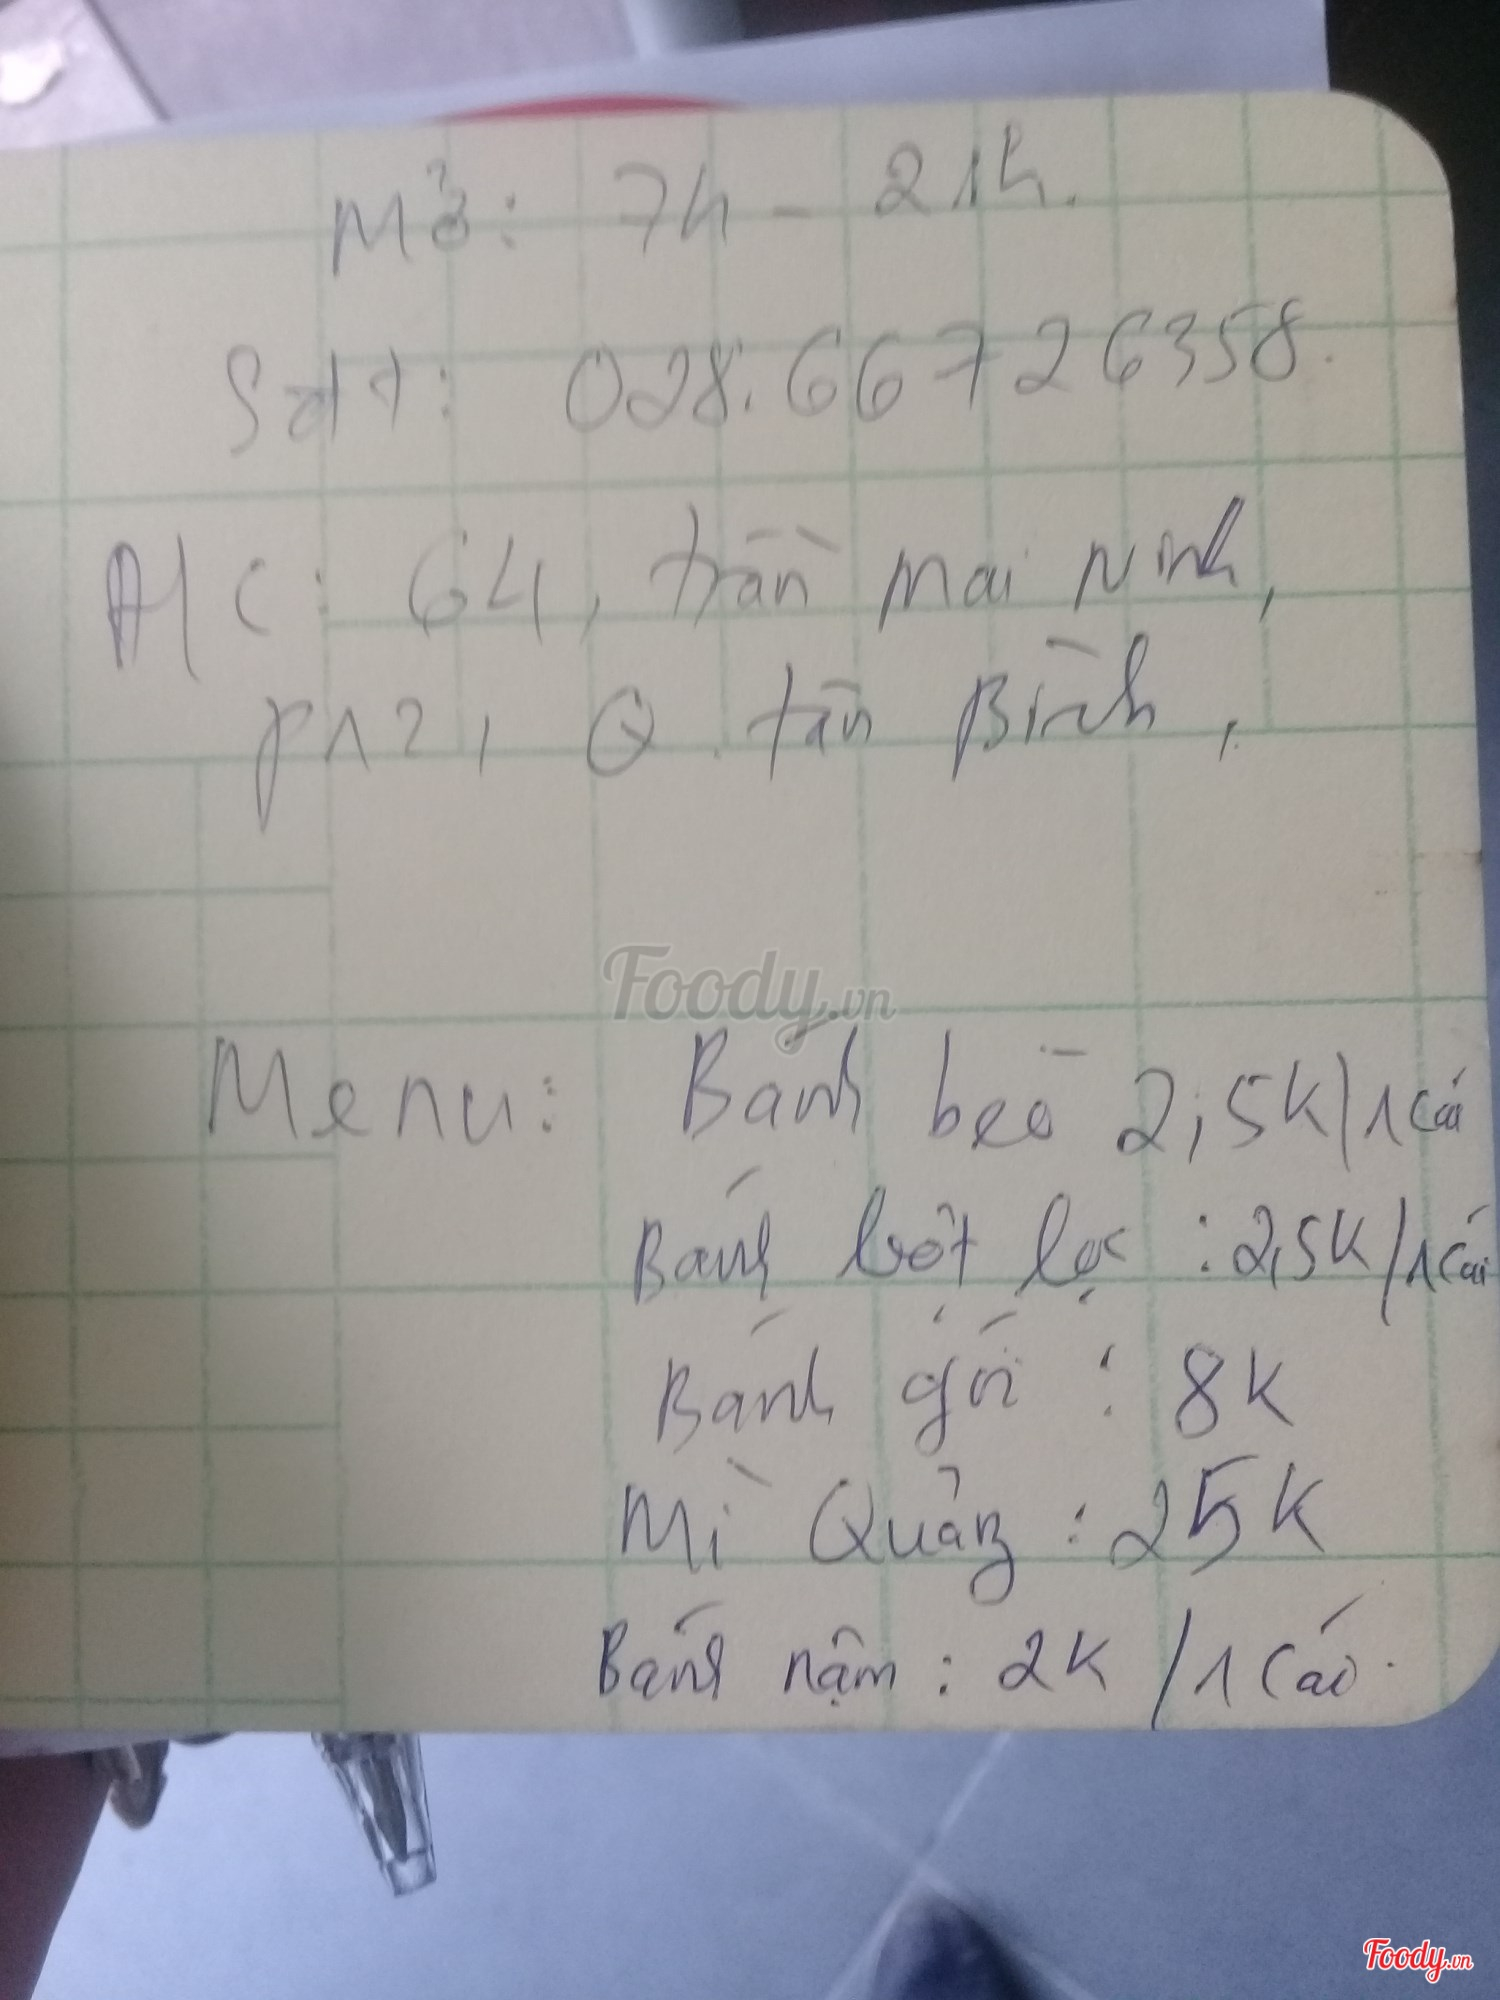 Mở: 7h - 21h.
Sđt: 028.66726358.
Đ/C: 64, trần Mai Ninh,
P12, Q. tân Bình,
Foody.vn
Menu: Bánh bèo 2,5K/1 cái
Bánh bột lọc : 2,5K/1 cái
Bánh gói : 8K
Mì Quảng : 25K
Bánh nậm : 2K / 1 cái.
Foody.vn